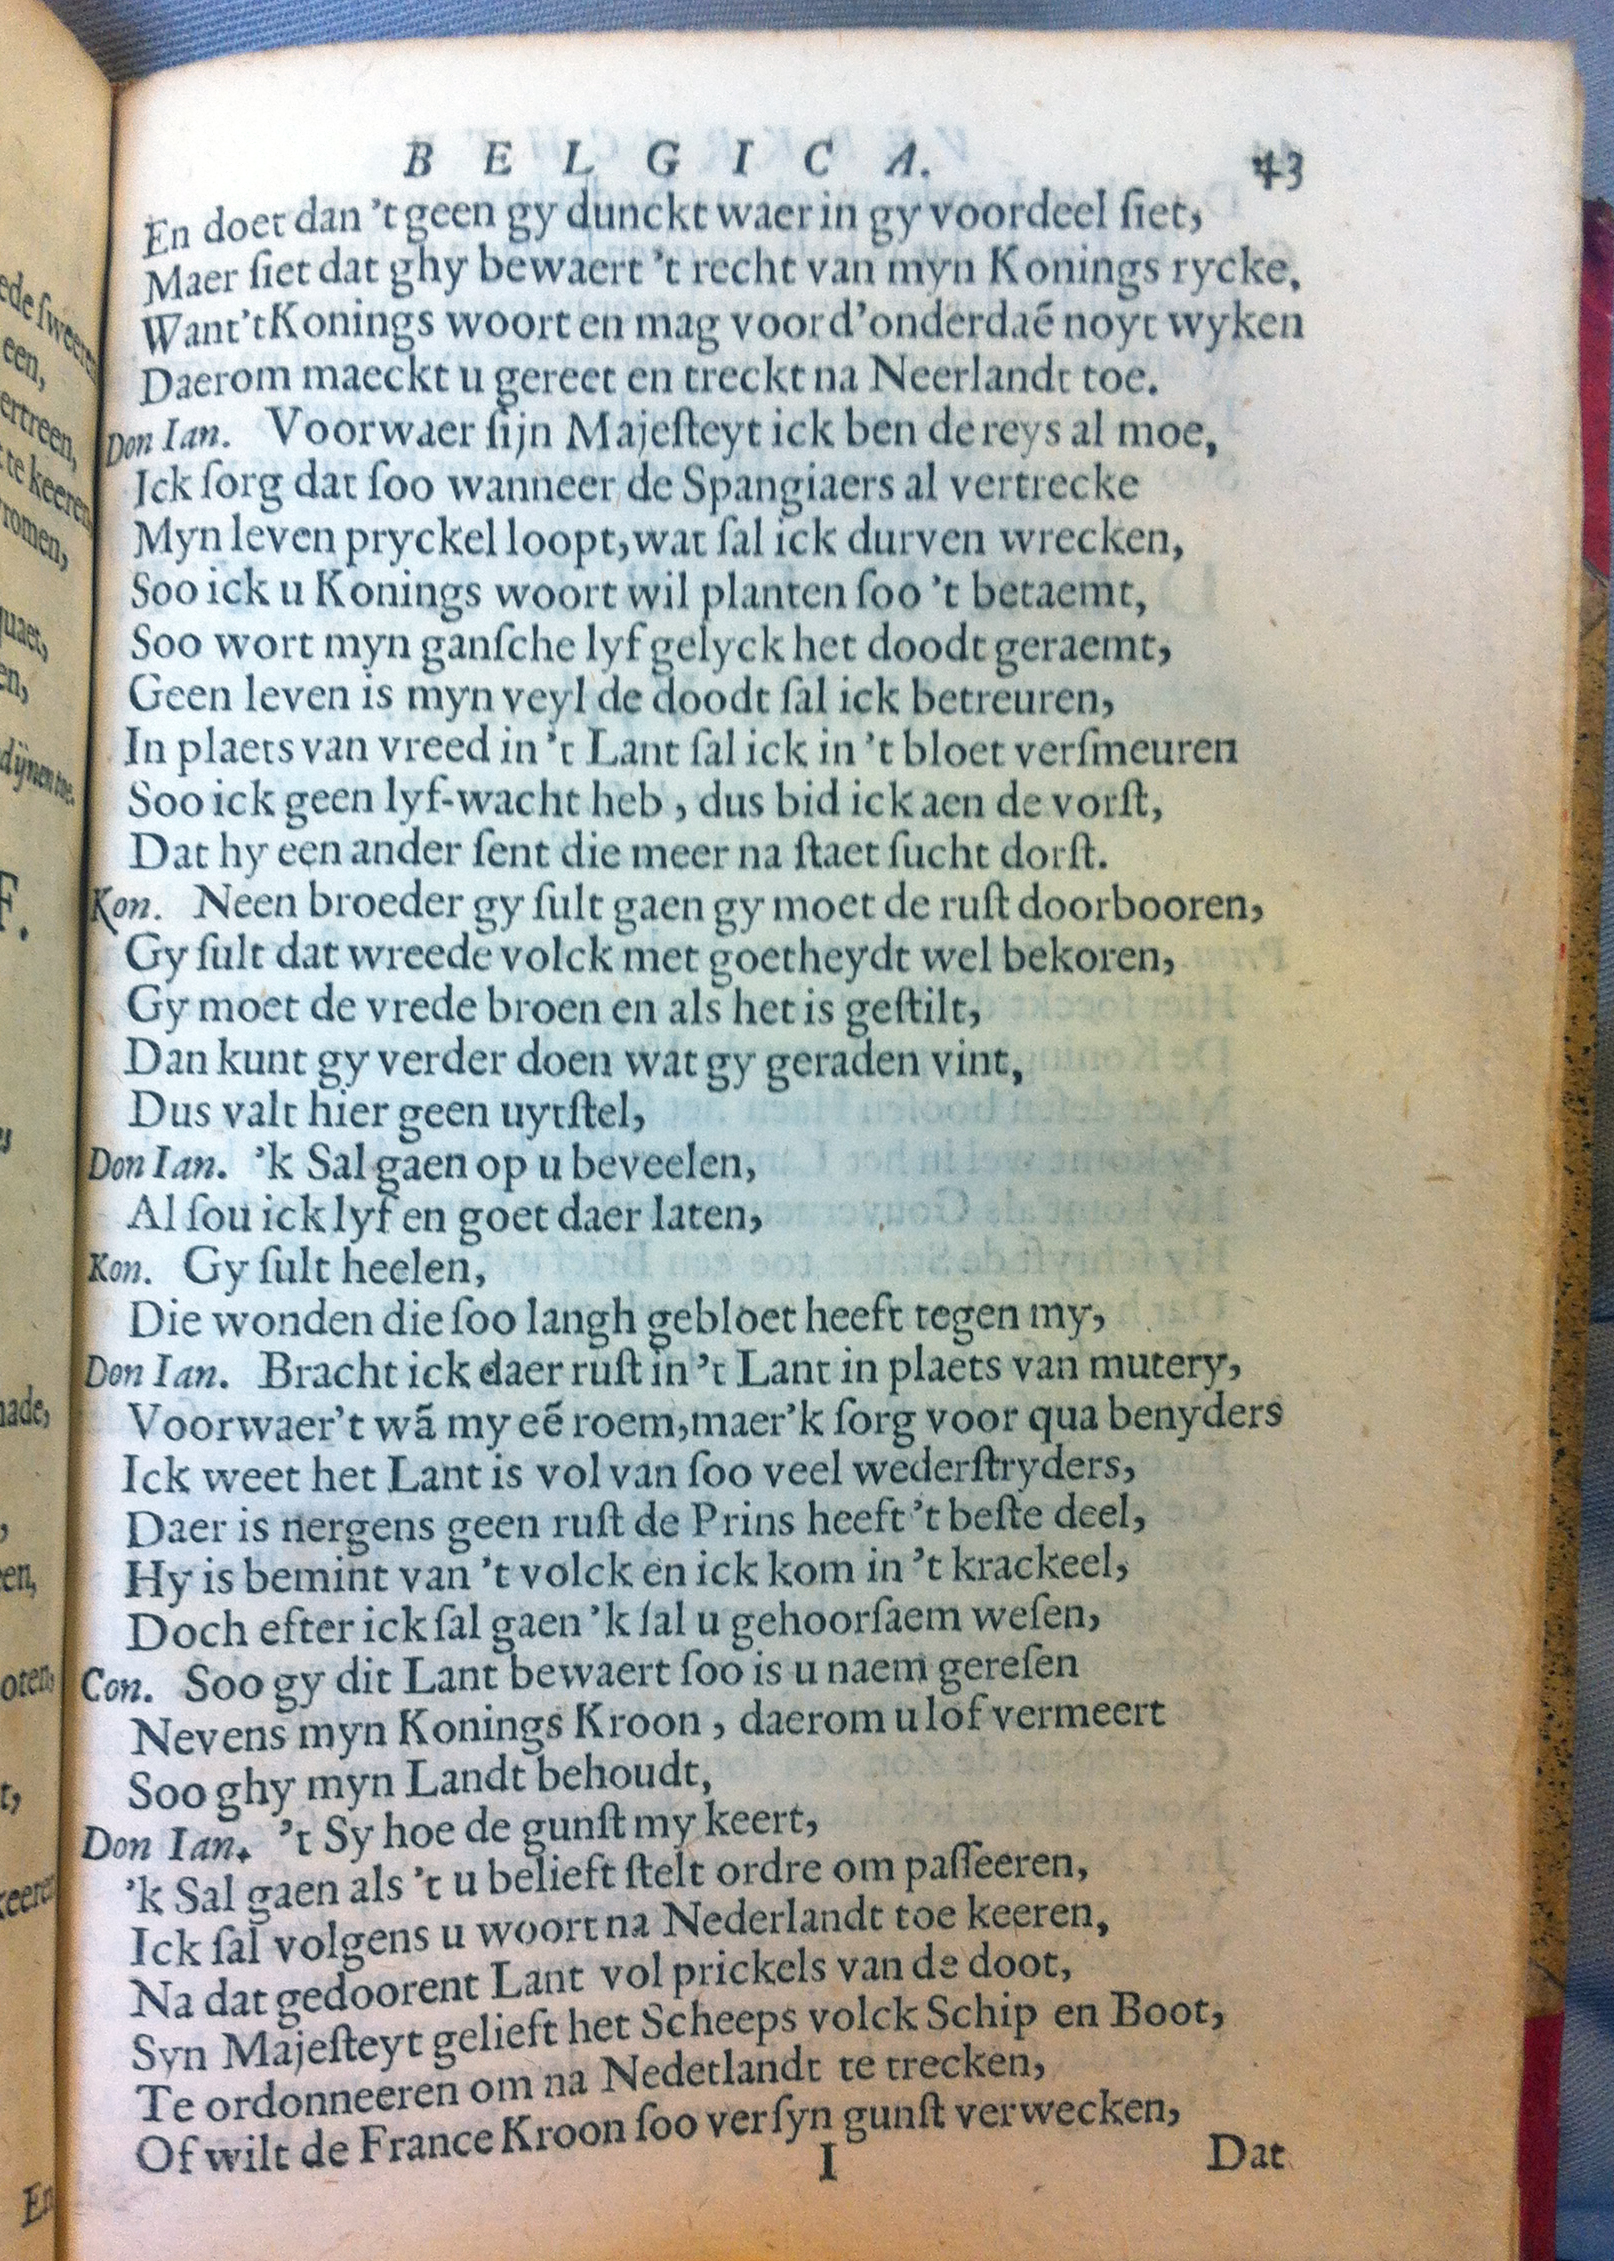 B E L G I C A. 43
En doet dan 't geen gy dunckt waer in gy voordeel ſiet,
Maer ſiet dat ghy bewaert 't recht van myn Konings rycke,
Want 't Konings woort en mag voor d'onderdaẽ noyt wyken
Daerom maeckt u gereet en treckt na Neerlandt toe.
Don Ian. Voorwaer ſijn Majeſteyt ick ben de reys al moe,
Ick ſorg dat ſoo wanneer de Spangiaers al vertrecke
Myn leven pryckel loopt, wat ſal ick durven wrecken,
Soo ick u Konings woort wil planten ſoo 't betaemt,
Soo wort myn ganſche lyf gelyck het doodt geraemt,
Geen leven is myn veyl de doodt ſal ick betreuren,
In plaets van vreed in 't Lant ſal ick in 't bloet verſmeuren
Soo ick geen lyf-wacht heb, dus bid ick aen de vorſt,
Dat hy een ander ſent die meer na ſtaet ſucht dorſt.
Kon. Neen broeder gy ſult gaen gy moet de ruſt doorbooren,
Gy ſult dat wreede volck met goetheydt wel bekoren,
Gy moet de vrede broen en als het is geſtilt,
Dan kunt gy verder doen wat gy geraden vint,
Dus valt hier geen uytſtel,
Don Ian. 'k Sal gaen op u beveelen,
Al ſou ick lyf en goet daer laten,
Kon. Gy ſult heelen,
Die wonden die ſoo langh gebloet heeft tegen my,
Don Ian. Bracht ick daer ruſt in 't Lant in plaets van mutery,
Voorwaer 't wã my eẽ roem, maer 'k ſorg voor qua benyders
Ick weet het Lant is vol van ſoo veel wederſtryders,
Daer is nergens geen ruſt de Prins heeft 't beſte deel,
Hy is bemint van 't volck en ick kom in 't krackeel,
Doch efter ick ſal gaen 'k ſal u gehoorſaem weſen,
Con. Soo gy dit Lant bewaert ſoo is u naem gereſen
Nevens myn Konings Kroon, daerom u lof vermeert
Soo ghy myn Landt behoudt,
Don Ian. 't Sy hoe de gunſt my keert,
'k Sal gaen als 't u belieft ſtelt ordre om paſſeeren,
Ick ſal volgens u woort na Nederlandt toe keeren,
Na dat gedoorent Lant vol prickels van de doot,
Syn Majeſteyt gelieft het Scheeps volck Schip en Boot,
Te ordonneeren om na Nedetlandt te trecken,
Of wilt de France Kroon ſoo ver ſyn gunſt verwecken,
I Dat